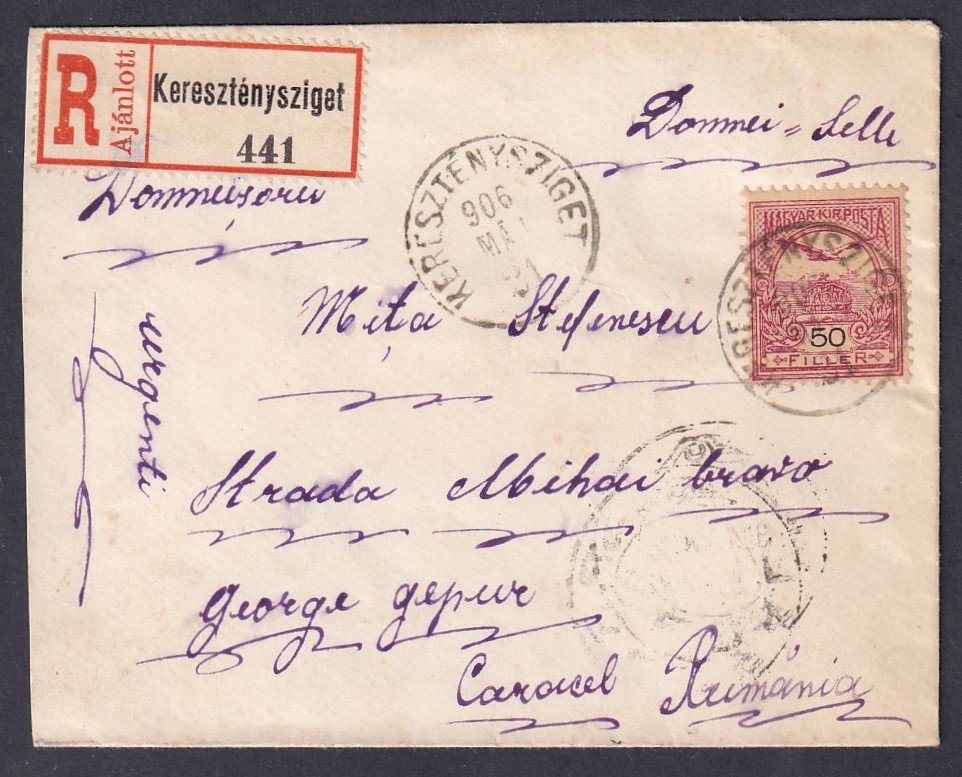 R
Ajánlott
Kereszténysziget
441
Domnei = Selle
Domneisoru
KERESZTÉNYSZIGET
906
MAGYAR KIR. POSTA
50
FILLÉR
Mita Stefenescu
urgenti
Strada Mihai bravo
George gepur
Caracel Rumánia